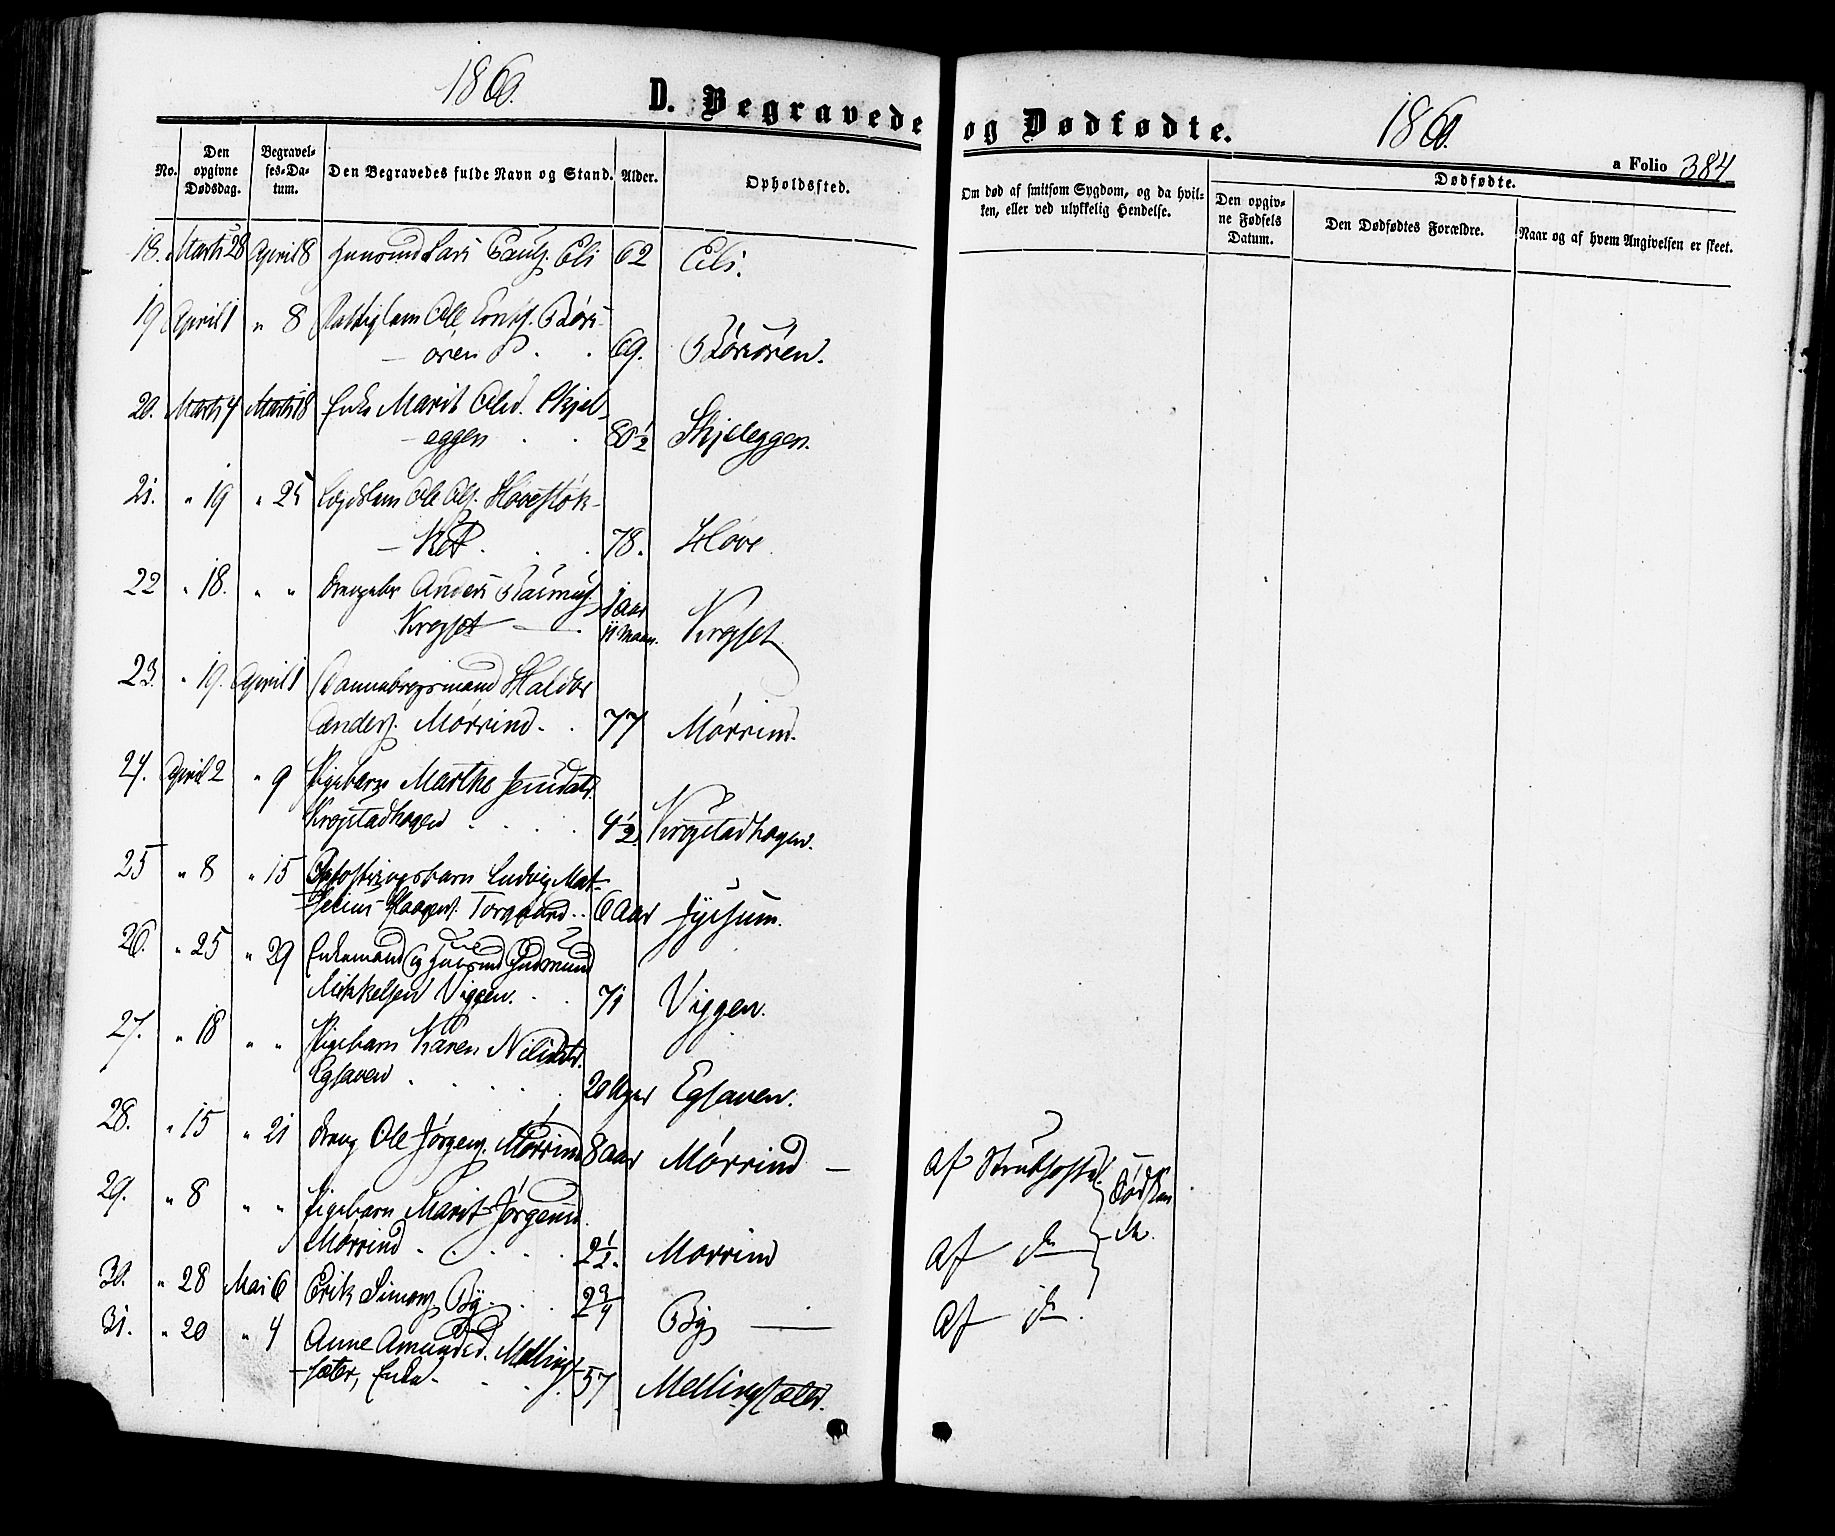 1860.
D. Begravede og Dødfødte.
1860.
a Folio 384
No.
Den opgivne Dødsdag.
Begravelses-Datum.
Den Begravedes fulde Navn og Stand.
Alder.
Opholdssted.
Om død af smitsom Sygdom, og da hvilken, eller ved ulykkelig Hendelse.
Dødfødte.
Den opgivne Fødsels Datum.
Den Dødfødtes Forældre.
Naar og af hvem Angivelsen er skeet.
18. Marts 28 April 8 Lars Pauls. Eli 62 Eli.
19 April 1 " 8 Ole
ören 69.
20. Marts 4 Marts 18 Enke Marit Olsd. Skjel-
eggen 80½ Skjeleggen.
21. " 19 " 25 Lægdslem Ole Ols. Hovestøk-
78. Hove
22 " 18. " " Anders Rasmus.
Krogset 1 Aar 11 Maan. Krogset
23. " 19. April 1 Dannebrogsmand Haldor
Anders. Mørrind. 77 Mørrind.
24. April 2 " 9 Pigebarn Marthe Jensdatr.
Krogstadhagen 4½ Krogstadhagen.
25 " 8 " 15 Opfostringsbarn Ludvig Mat-
Torgaard. 6 Aar
26. " 25 " 29 Enkemand og Gudmund
Mikkelsen Viggen. 71 Viggen.
27. " 18 " " Pigebarn Karen Nilsdtr.
Egsaven 20 Uger Egsaven.
28. " 15 " 21 Dreng Ole Jørgens. Mørrind 8 Aar Mørrind — Af Strubehoste
29. " 8 " " Pigebarn Marit Jørgensd.
Mørrind 2½. Morrind af do
30. " 28 Mai 6 Erik Simons. By. 2¾ By — af do.
31. " 20 " 4 Anne Amundsd. Melling-
sæter, Enke 57 Mellingsæter.